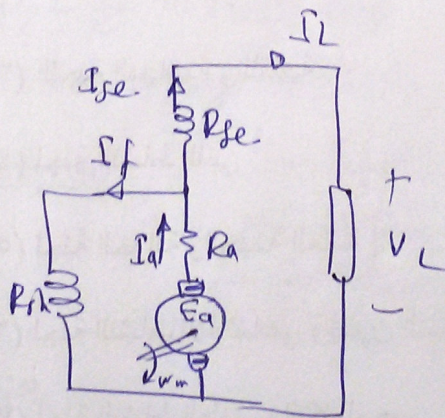 IL
Ise
Rse
If
Ia
Ra
Rsh
Ea
wm
+
VL
-